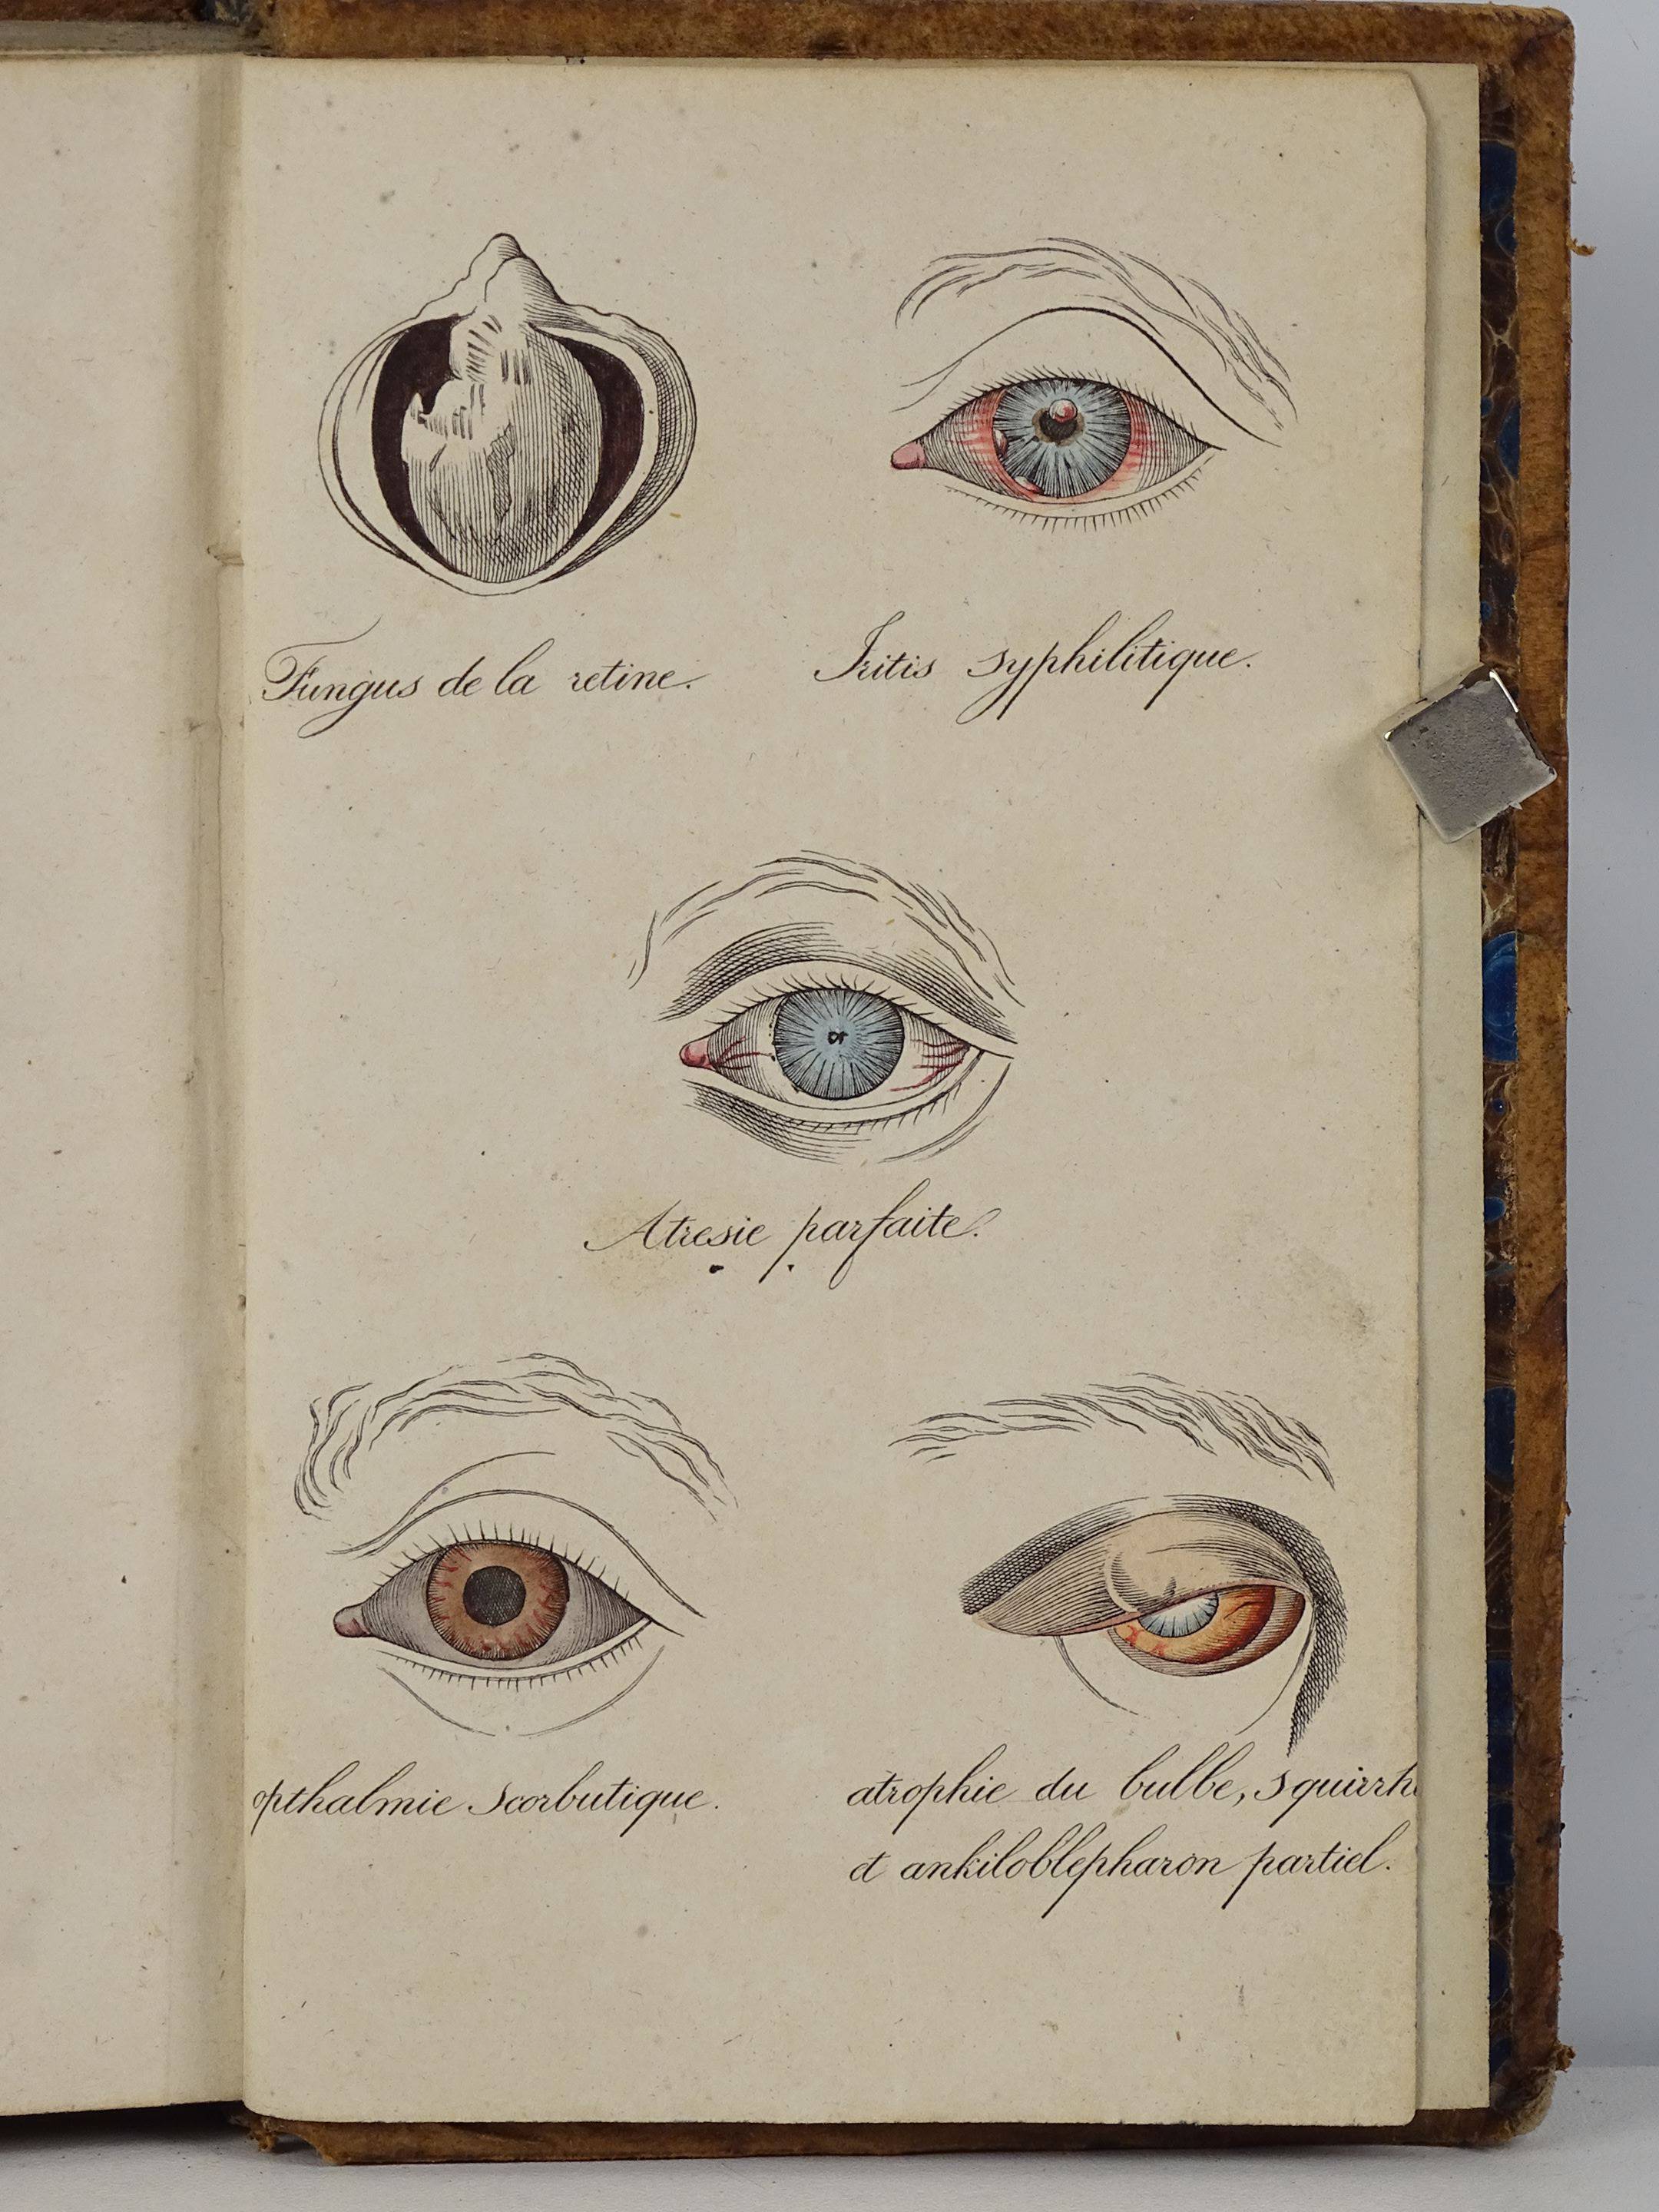 Fungus de la retine.
Iritis syphilitique.
Atresie parfaite.
opthalmie Scorbutique.
atrophie du bulbe, squirrhe
et ankiloblepharon partiel.